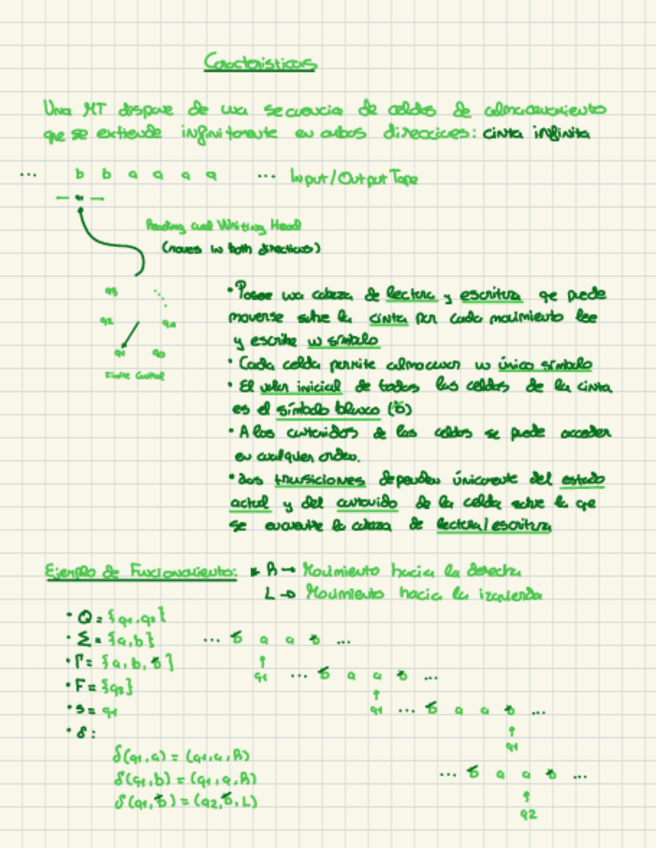 Características
Una MT dispone de una secuencia de celdas de almacenamiento
que se extiende infinitamente en ambas direcciones: cinta infinita
... b b a a a a ... Input/Output Tape
Reading and Writing Head
(moves in both directions)
q3
q2 qn
q1 q0
Finite Control
• Posee una cabeza de lectura y escritura que puede
moverse sobre la cinta por cada movimiento lee
y escribe un símbolo
• Cada celda permite almacenar un único símbolo
• El valor inicial de todas las celdas de la cinta
es el símbolo blanco (ƀ)
• A los contenidos de las celdas se puede acceder
en cualquier orden.
• Las transiciones dependen únicamente del estado
actual y del contenido de la celda sobre la que
se encuentre la cabeza de lectura/escritura
Ejemplo de Funcionamiento: R → Movimiento hacia la derecha
L → Movimiento hacia la izquierda
• Q = {q1,q2}
• Σ = {a,b} ... ƀ a a ƀ ...
• Γ = {a,b,ƀ} q1 ... ƀ a a ƀ ...
• F = {q2}
• s = q1 q1 ... ƀ a a ƀ ...
• δ:
q1
δ(q1,a) = (q1,a,R)
δ(q1,b) = (q1,a,R) ... ƀ a a ƀ ...
δ(q1,ƀ) = (q2,ƀ,L)
q2